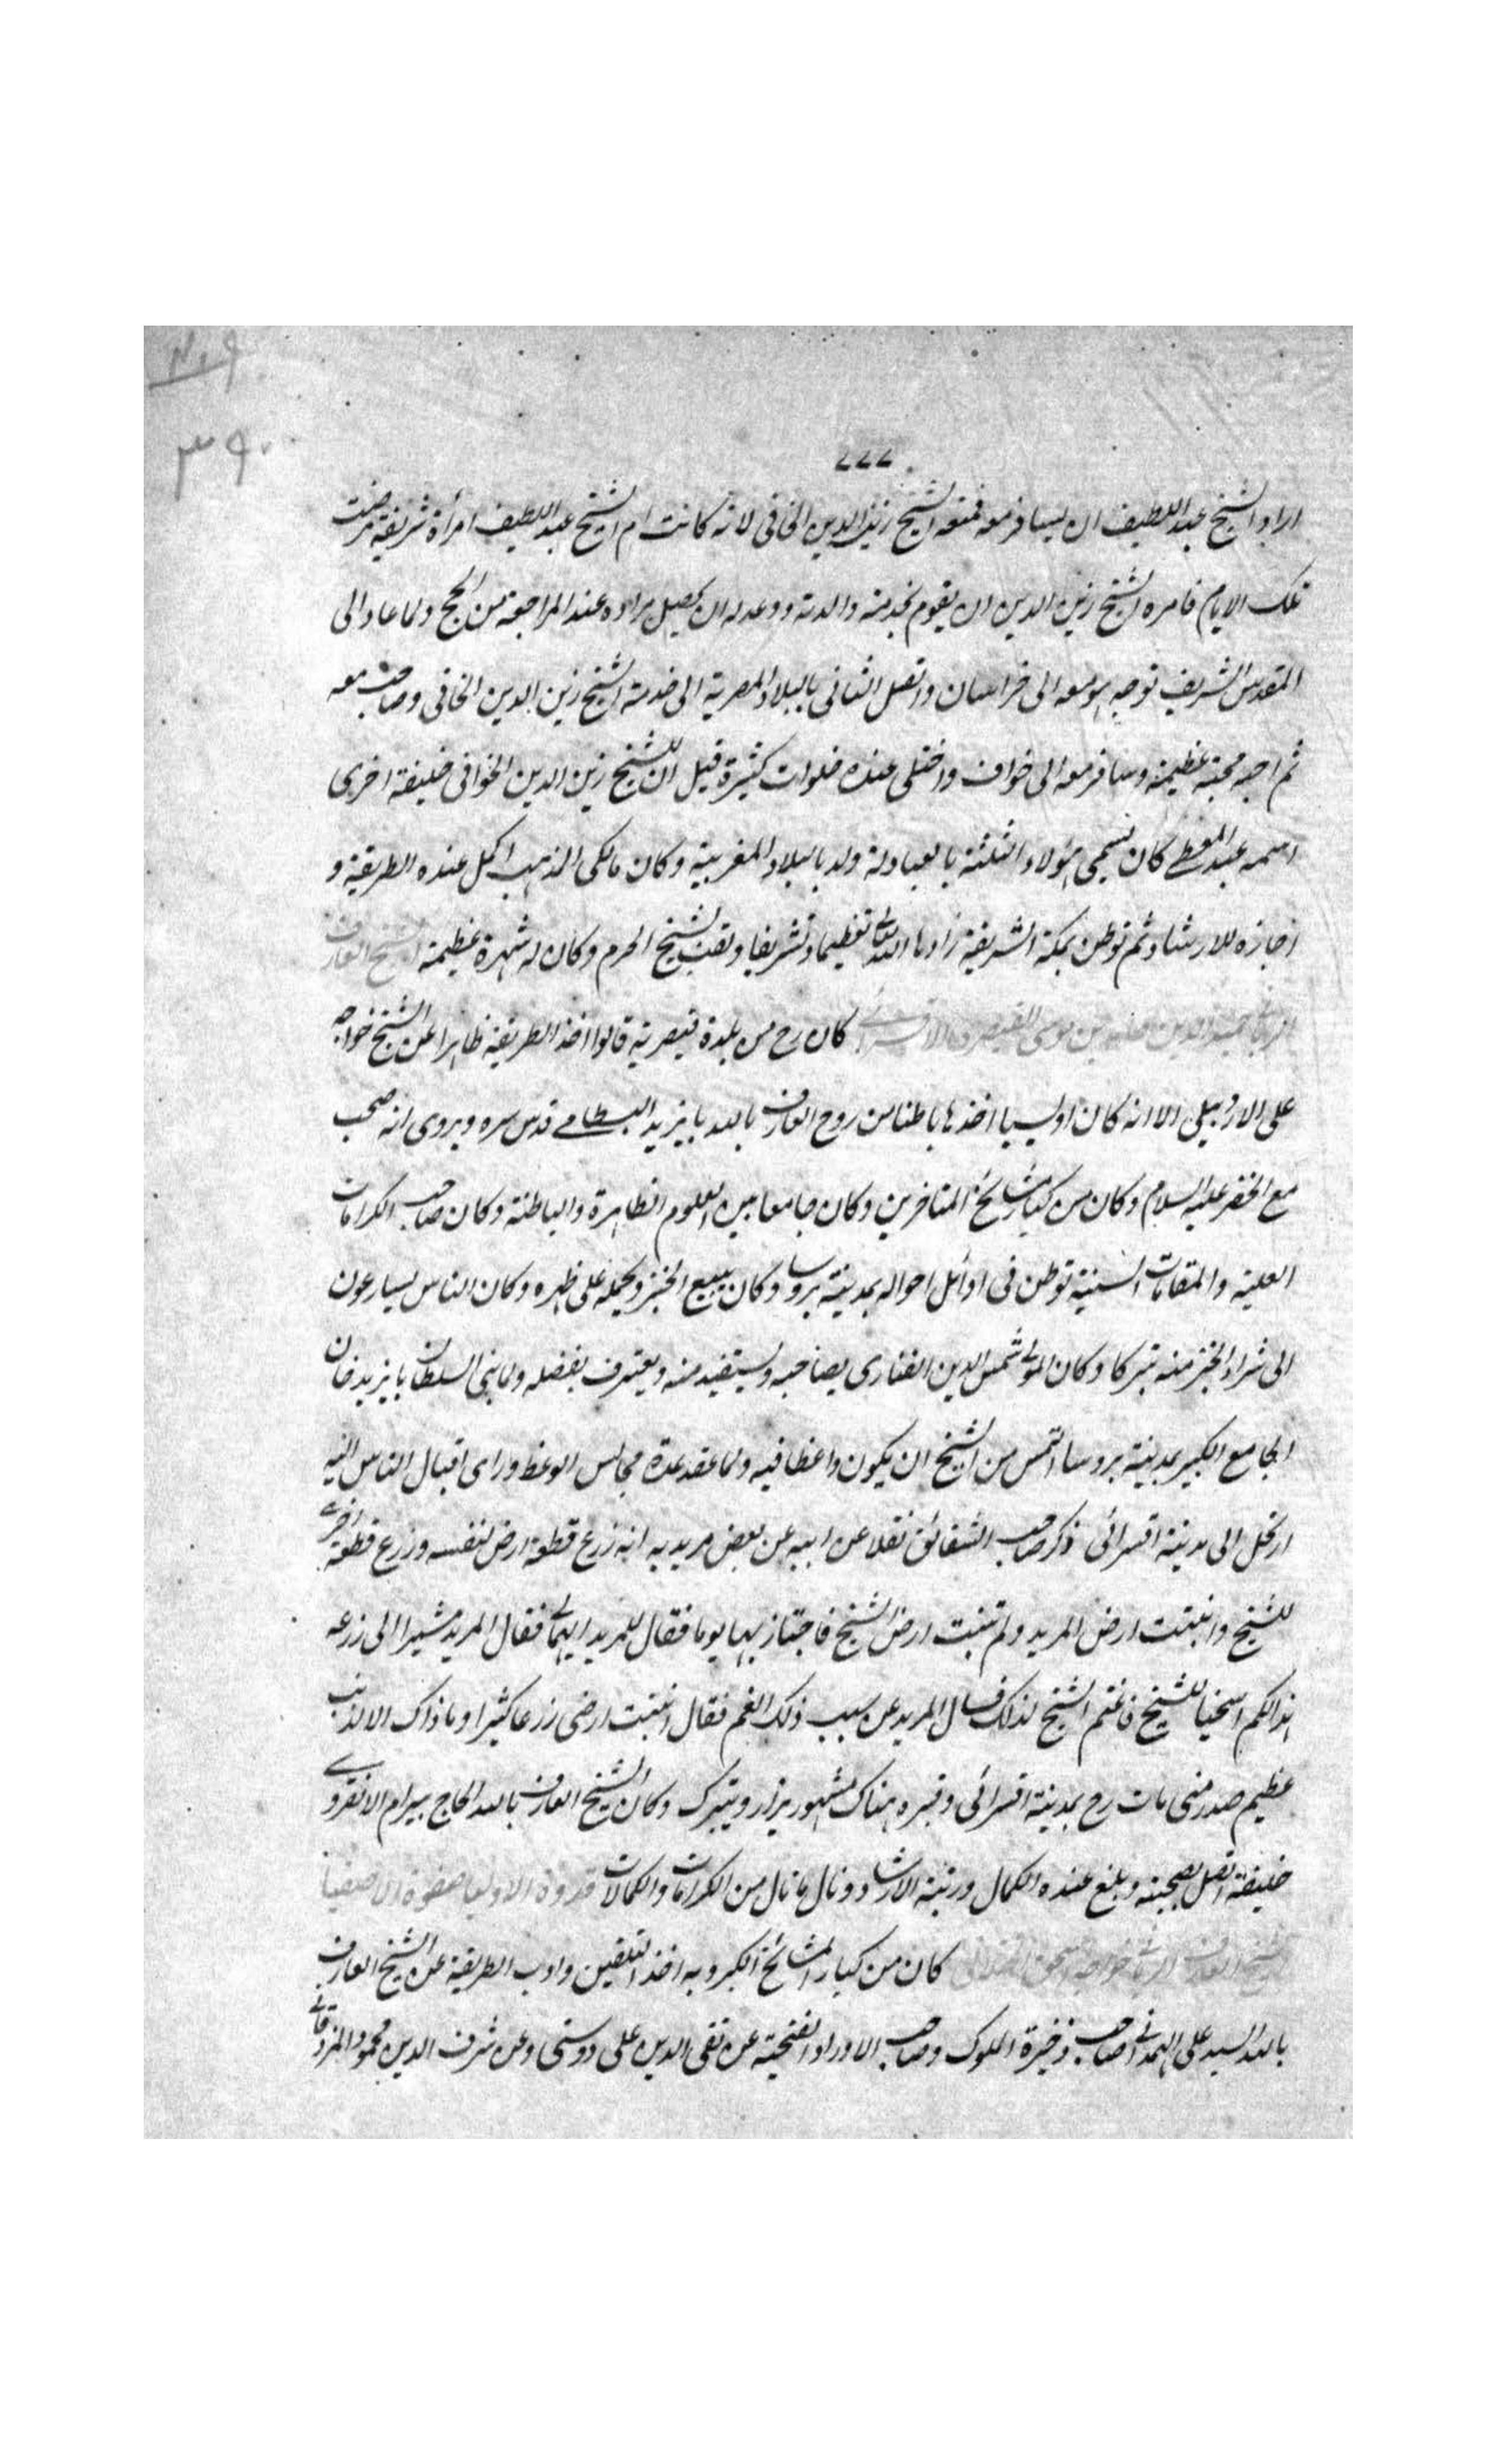 ٣٩٠
اراد الشيخ عبد اللطيف ان يسافر معه فمنعه الشيخ زين الدين الخافى لانه كانت ام الشيخ عبد اللطيف امرأة شريفة مرضت
تلك الايام فامره الشيخ زين الدين ان يقوم بخدمة والدته ووعد له ان يحصل مراده عند المراجعة من الحج ولما عاد الى
المقدس الشريف توجه هو معه الى خراسان واتصل الثانى بالبلاد المصرية الى خدمة الشيخ زين الدين الخافى وصاحب معه
ثم احبه محبة عظيمة وسافر معه الى خواف واختلى عنده خلوات كثيرة قيل ان للشيخ زين الدين الخوافى خليفة اخرى
اسمه عبد المعطى كان يسمى هؤلاء الثلثة بالعبادلة ولد بالبلاد المغربية وكان مالكى المذهب اكمل عنده الطريقة و
اجازه للارشاد ثم توطن بمكة الشريفة زادها الله تعالى تعظيما وتشريفا ولقب بشيخ الحرم وكان له شهرة عظيمة الشيخ العارف
حميد الدين بن موسى القيصرى كان رح من بلدة قيصرية قالوا اخذ الطريقة ظاهرا عن الشيخ خواجه
على الاردبيلى الا انه كان اويسيا اخذها باطنا من روح العارف بالله بايزيد البسطامى قدس سره ويروى انه صحب
مع الخضر عليه السلام وكان من كبار مشائخ المتاخرين وكان جامعا بين العلوم الظاهرة والباطنة وكان صاحب الكرامات
العلية والمقامات السنية توطن فى اوائل احواله بمدينة بروسا وكان يبيع الخبز ويحمله على ظهره وكان الناس يسارعون
الى شراء الخبز منه تبركا وكان المولى شمس الدين الفنارى يصاحبه ويستفيد منه ويعترف بفضله ولما بنى السلطان بايزيد خان
الجامع الكبير بمدينة بروسا التمس من الشيخ ان يكون واعظا فيه ولما عقد عدة مجالس الوعظ وراى اقبال الناس اليه
ارتحل الى مدينة اقسرائى ذكر صاحب الشقائق نقلا عن ابيه عن بعض مريديه انه زرع قطعة ارض لنفسه وزرع قطعة اخرى
للشيخ وانبتت ارض المريد ولم تنبت ارض الشيخ فاجتاز بها يوما فقال للمريد ايهما فقال المريد مشيرا الى زرعه
هذا لكم اسحيا للشيخ فاغتم الشيخ لذلك فسال المريد عن سبب ذلك الغم فقال انبتت ارضى زرعا كثيرا وما ذاك الا لذنب
عظيم صدر منى مات رح بمدينة اقسرائى وقبره هناك مشهور يزار ويتبرك وكان الشيخ العارف بالله الحاج بيرام الانقروى
خليفته اتصل بصحبته وبلغ عنده الكمال ورتبة الارشاد ونال ما نال من الكرامات والكمالات قدوة الاوليا صفوة الاصفيا
الشيخ العارف الربانى خواجه اسحق الختلانى كان من كبار المشائخ الكبرويه اخذ التلقين وادب الطريقة عن الشيخ العارف
بالله السيد على الهمدانى صاحب ذخيرة الملوك وصاحب الاوراد الفتحية عن تقى الدين على دوستى وعن شرف الدين محمود المزدقانى